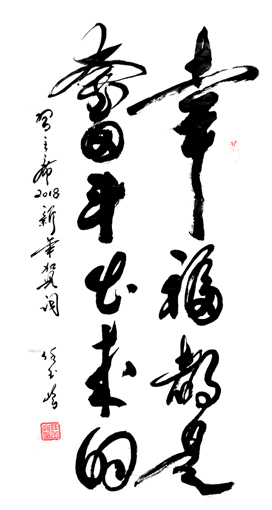 幸福都是
奋斗出来的
习主席2018新年贺词
任玉岭